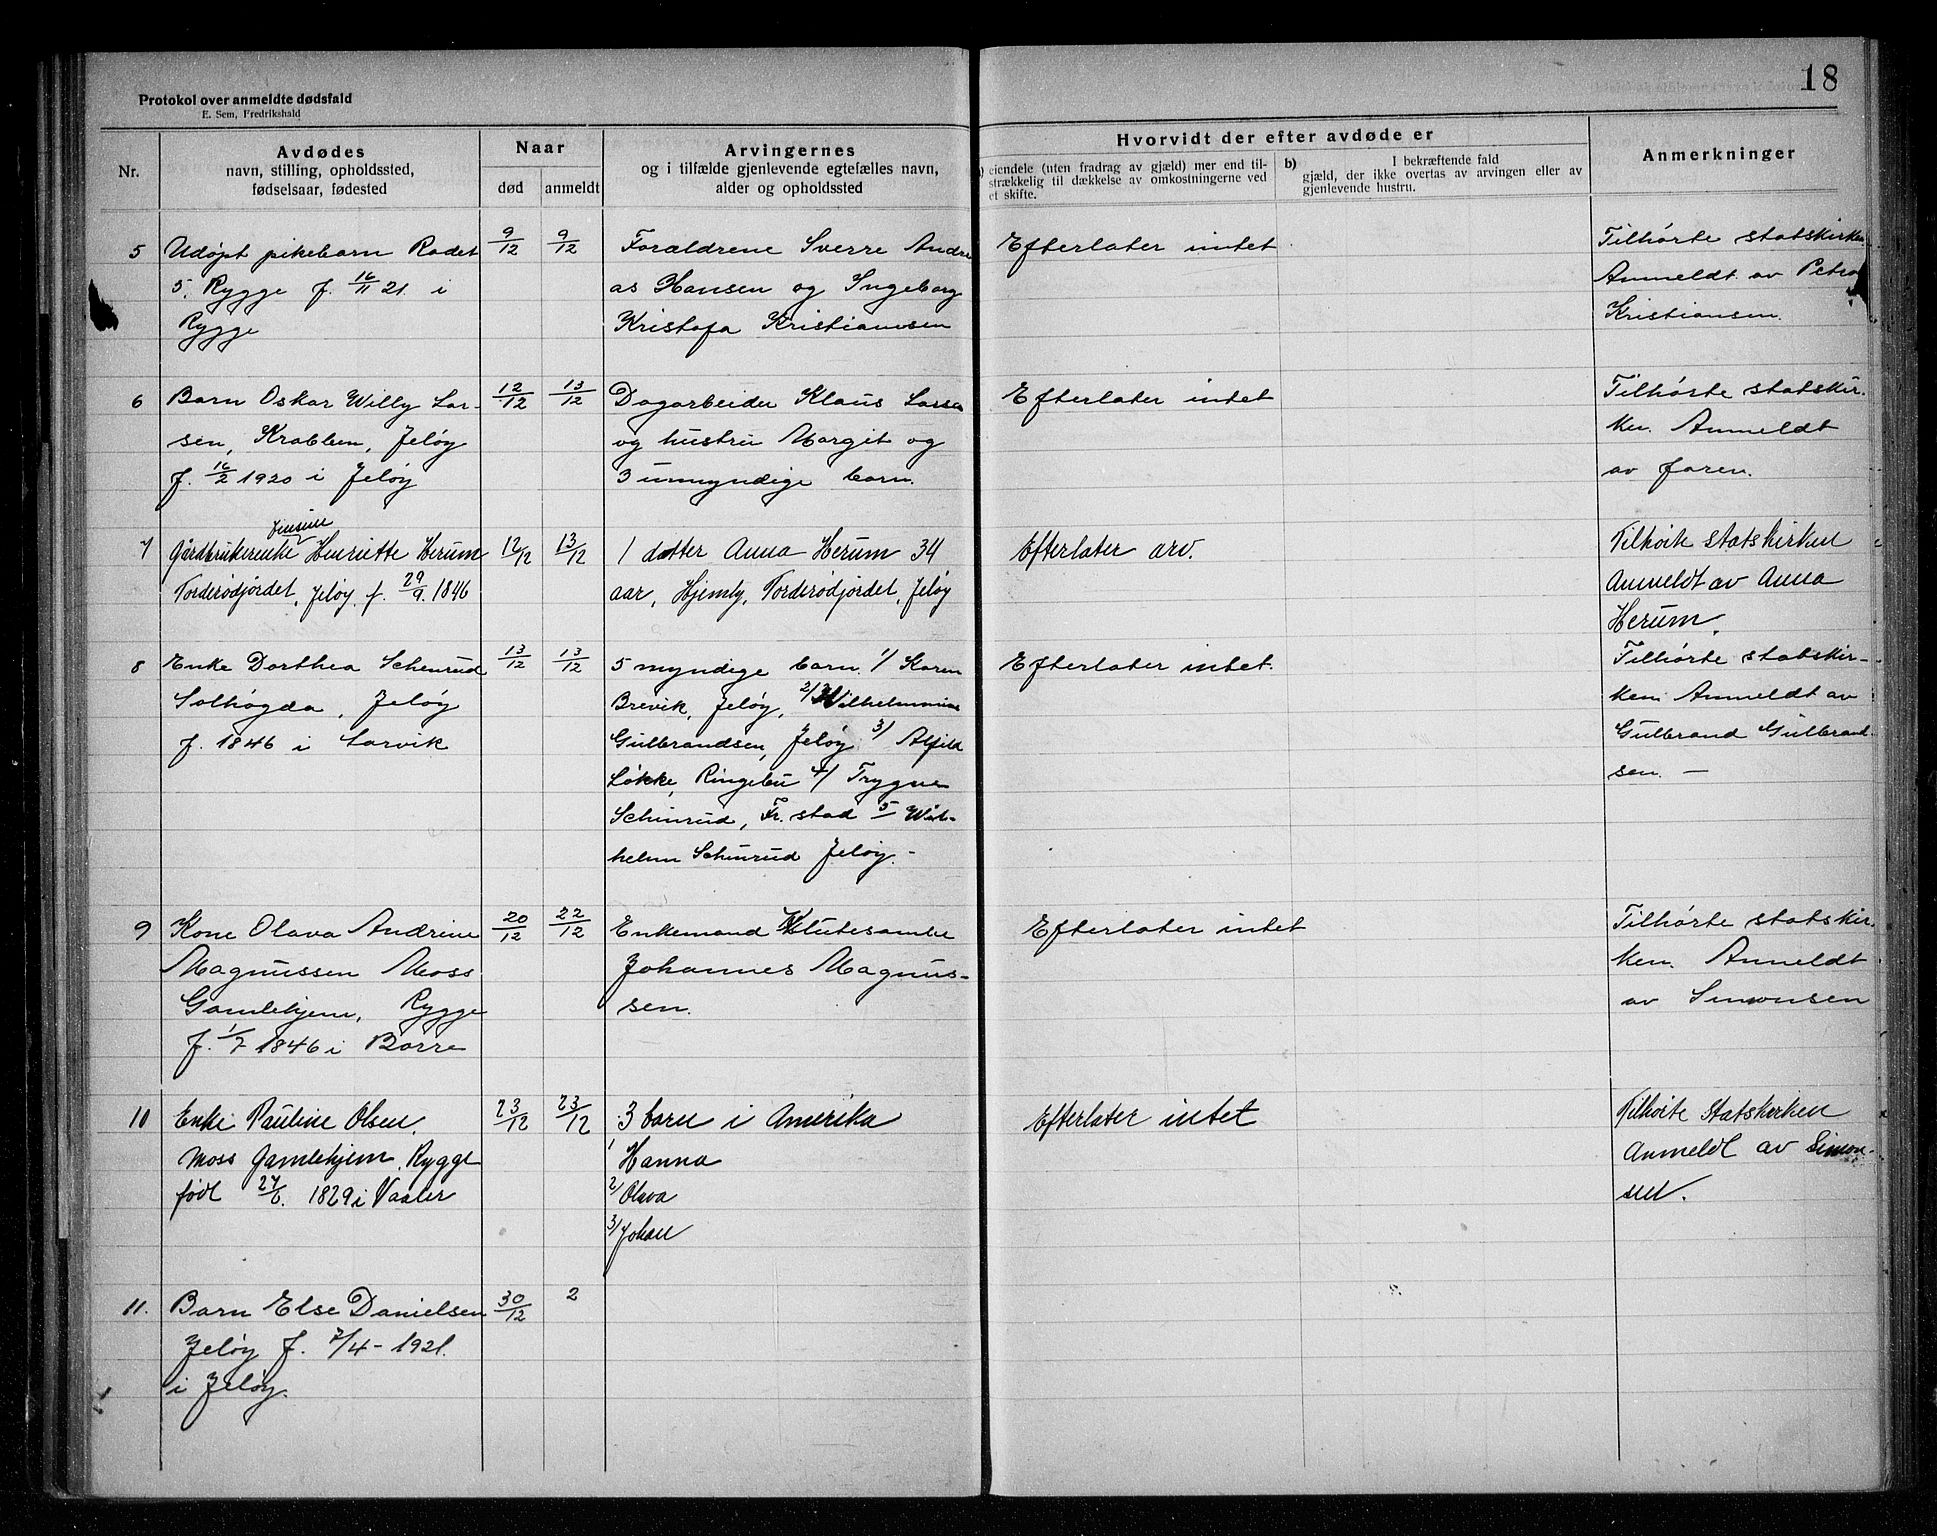 18
Protokol over anmeldte dødsfald
E. Sem, Fredrikshald
Nr.
Avdødes
navn, stilling, opholdssted,
fødselsaar, fødested
Naar
død
anmeldt
Arvingernes
og i tilfælde gjenlevende egtefælles navn,
alder og opholdssted
Hvorvidt der efter avdøde er
eiendele (uten fradrag av gjæld) mer end til-
strækkelig til dækkelse av omkostningerne ved
et skifte.
b)
I bekræftende fald
gjæld, der ikke overtas av arvingen eller av
gjenlevende hustru.
Anmerkninger
5
Udøpt pikebarn Rødet
5, Rygge f. 16/11 21. i
Rygge
9/12
9/12
Forældrene Sverre Andre
as Hansen og Ingeborg
Kristofa Kristiansen
Efterlater intet
Tilhørte statskirken
Anmeldt av Petra
Kristiansen.
6
Barn Oskar Willy Lar-
sen, Krabben, Jeløy
f. 16/2 1920 i Jeløy
12/12
13/12
Dagarbeider Klaus Larsen
og hustru Margit og
3 umyndige barn.
Efterlater intet
Tilhørte statskir-
ken. Anmeldt
av faren.
7
Jensine
Gårdbrukerenke Henriette Herum
Torderødjordet, Jeløy, f. 29/9. 1846
12/12
13/12
1 datter Anna Herum 34
aar, Hjemly, Torderødjordet, Jeløy
Efterlater arv.
Tilhörte statskirken
Anmeldt av Anna
Herum.
8
Enke Dorthea Schenrud
Solhøgda, Jeløy
f. 1846 i Larvik
13/12
13/12
5 myndige barn. 1/ Karen
Brevik, Jeløy, 2/ Wilhelmine
Gulbrandsen, Jeløy 3/ Alfild
Løkke, Ringebu 4/ Trygve
Schinrud, Fr.stad 5 Wil-
helm Schenrud Jeløy.-
Efterlater intet.
Tilhørte statskir-
ken. Anmeldt av
Gulbrand Gulbrand-
sen. —
9
Kone Olava Andrine
Magnussen Moss
Gamlehjem, Rygge
f. 1/7 1846 i Borre
20/12
22/12
Enkemand Klutesamler
Johannes Magnus-
sen.
Efterlater intet
Tilhørte statskir-
ken. Anmeldt
av Simonsen
10
Enke Pauline Olsen.
Moss Gamlehjem, Rygge
født 27/6. 1829 i Vaaler
23/12
23/12
3 barn i Amerika
1 Hanna
2/ Olava
3/ Johan
Efterlater intet
Tilhörte Statskirken
Anmeldt av Simon-
sen.
11.
Barn Else Danielsen
Jeløy f. 7/4 - 1921.
i Jeløy.
30/12
2